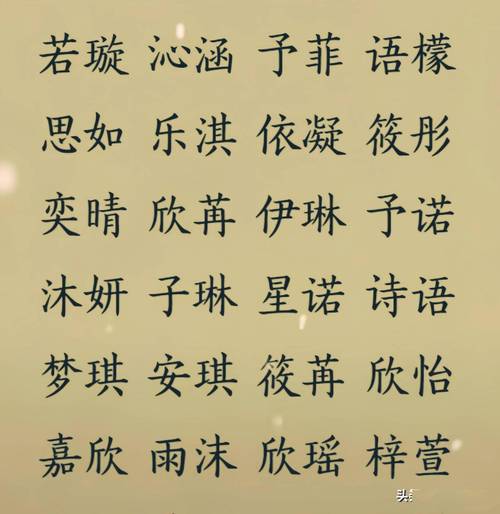 若璇 沁涵 予菲 语檬
思如 乐淇 依凝 筱彤
奕晴 欣苒 伊琳 予诺
沐妍 子琳 星诺 诗语
梦琪 安琪 筱苒 欣怡
嘉欣 雨沫 欣瑶 梓萱